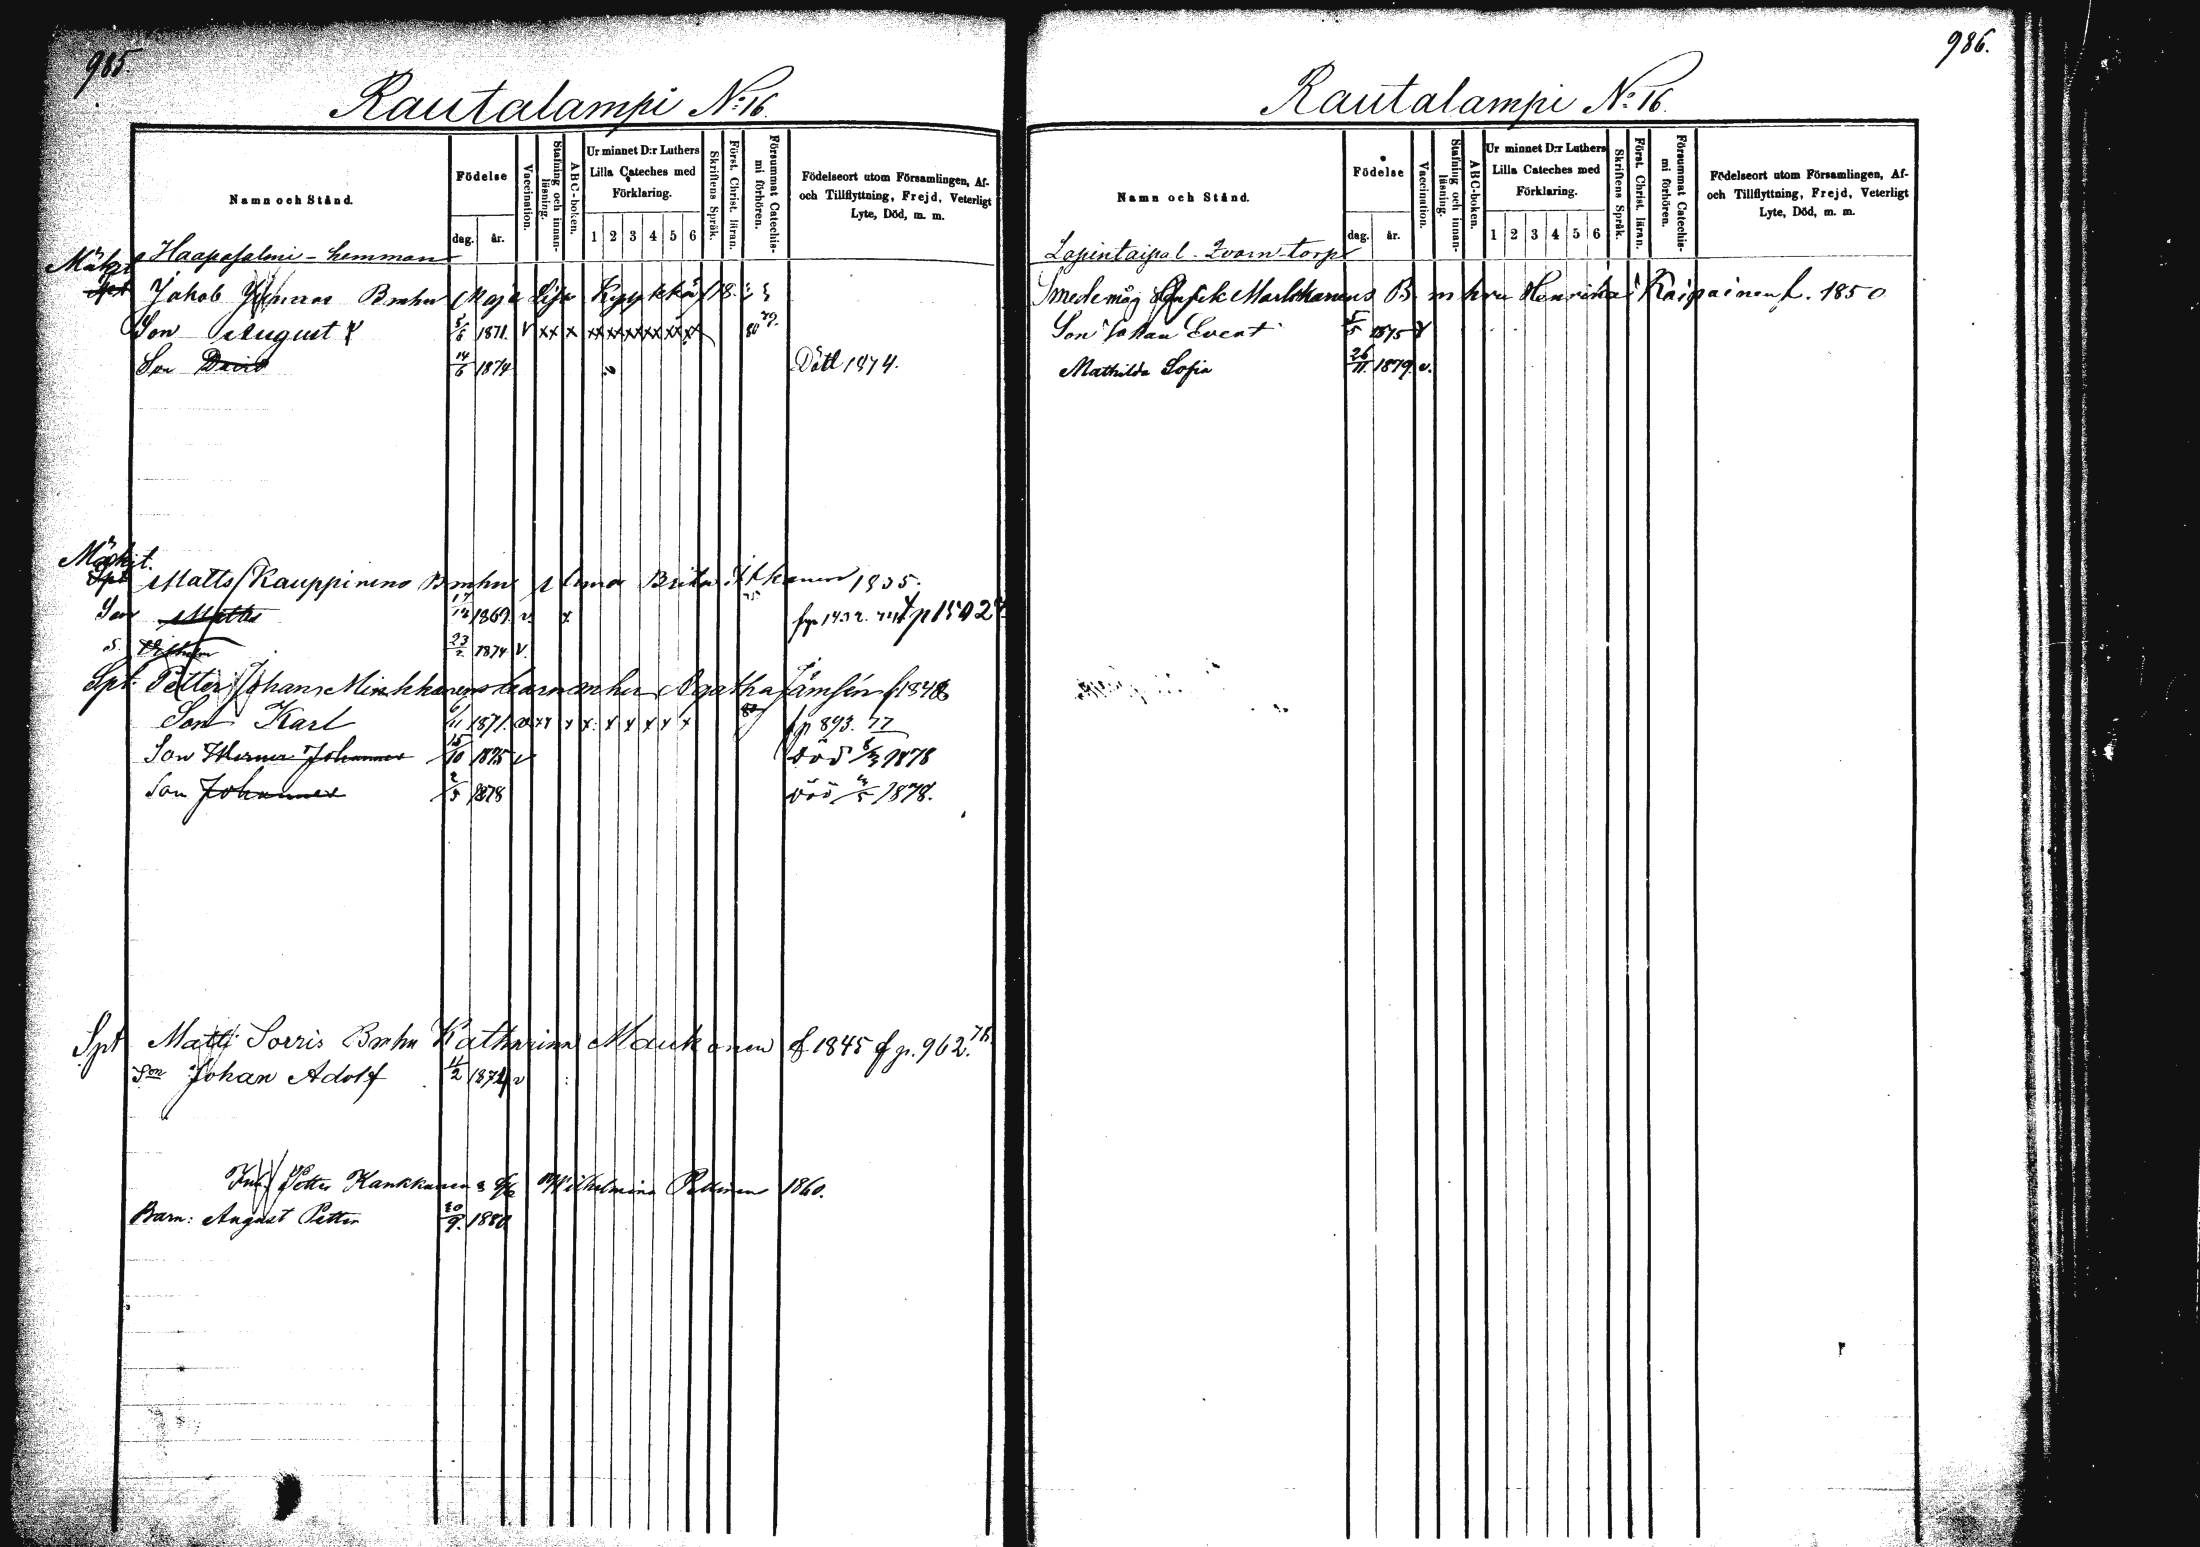 985.
Rautalampi No: 16.
Namn och Stånd.
Födelse
dag.
år.
Vaccination.
Stafning och innan-
läsning.
ABC-boken.
Ur minnet D:r Luthers
Lilla Cateches med
Förklaring.
1 2 3 4 5 6
Skriftens Språk.
Först. Christ. läran.
Försummat Catechis-
mi förhören.
Födelseort utom Församlingen, Af-
och Tillflyttning, Frejd, Veterligt
Lyte, Död, m. m.
Haapasalmi - hemman
Jakob Bmhu Maja Lisa
Son August 5/6 1871. v xx x 80 79.
Son David 14/6 1874 Död 1874.
Matts Kauppinens Bmhu Anna Brita 1835.
Son Matts 17/12 1869. v. x
s. 23/2 1874 v.
Spt. Petter Johan Agatha Jämsén f 1848
Son Karl 6/11 1871. v xx x x x x x x x fp 893. 77
Son Werner Johannes 15/10 1875 v död 8/3 1878
Son Johannes 2/5 1878 död /5 1878.
Spt Matti Sorris Bmhu Katharina Maukonen f 1845 f p. 962. 78.
Son Johan Adolf 11/2 1874 v
Petter Kankkunen Wilhelmina 1860.
Barn: August Petter 20/9. 1880
986.
Rautalampi No: 16.
Namn och Stånd.
Födelse
dag.
år.
Vaccination.
Stafning och innan-
läsning.
ABC-boken.
Ur minnet D:r Luthers
Lilla Cateches med
Förklaring.
1 2 3 4 5 6
Skriftens Språk.
Först. Christ. läran.
Försummat Catechis-
mi förhören.
Födelseort utom Församlingen, Af-
och Tillflyttning, Frejd, Veterligt
Lyte, Död, m. m.
Lapintaipal - Qvarn-torp
Smedemåg Markkanens B. m hru Henrika Kaipainen f. 1850
Son Johan Evert 5/5 1875 v
Mathilda Sofia 26/11 1879. v.